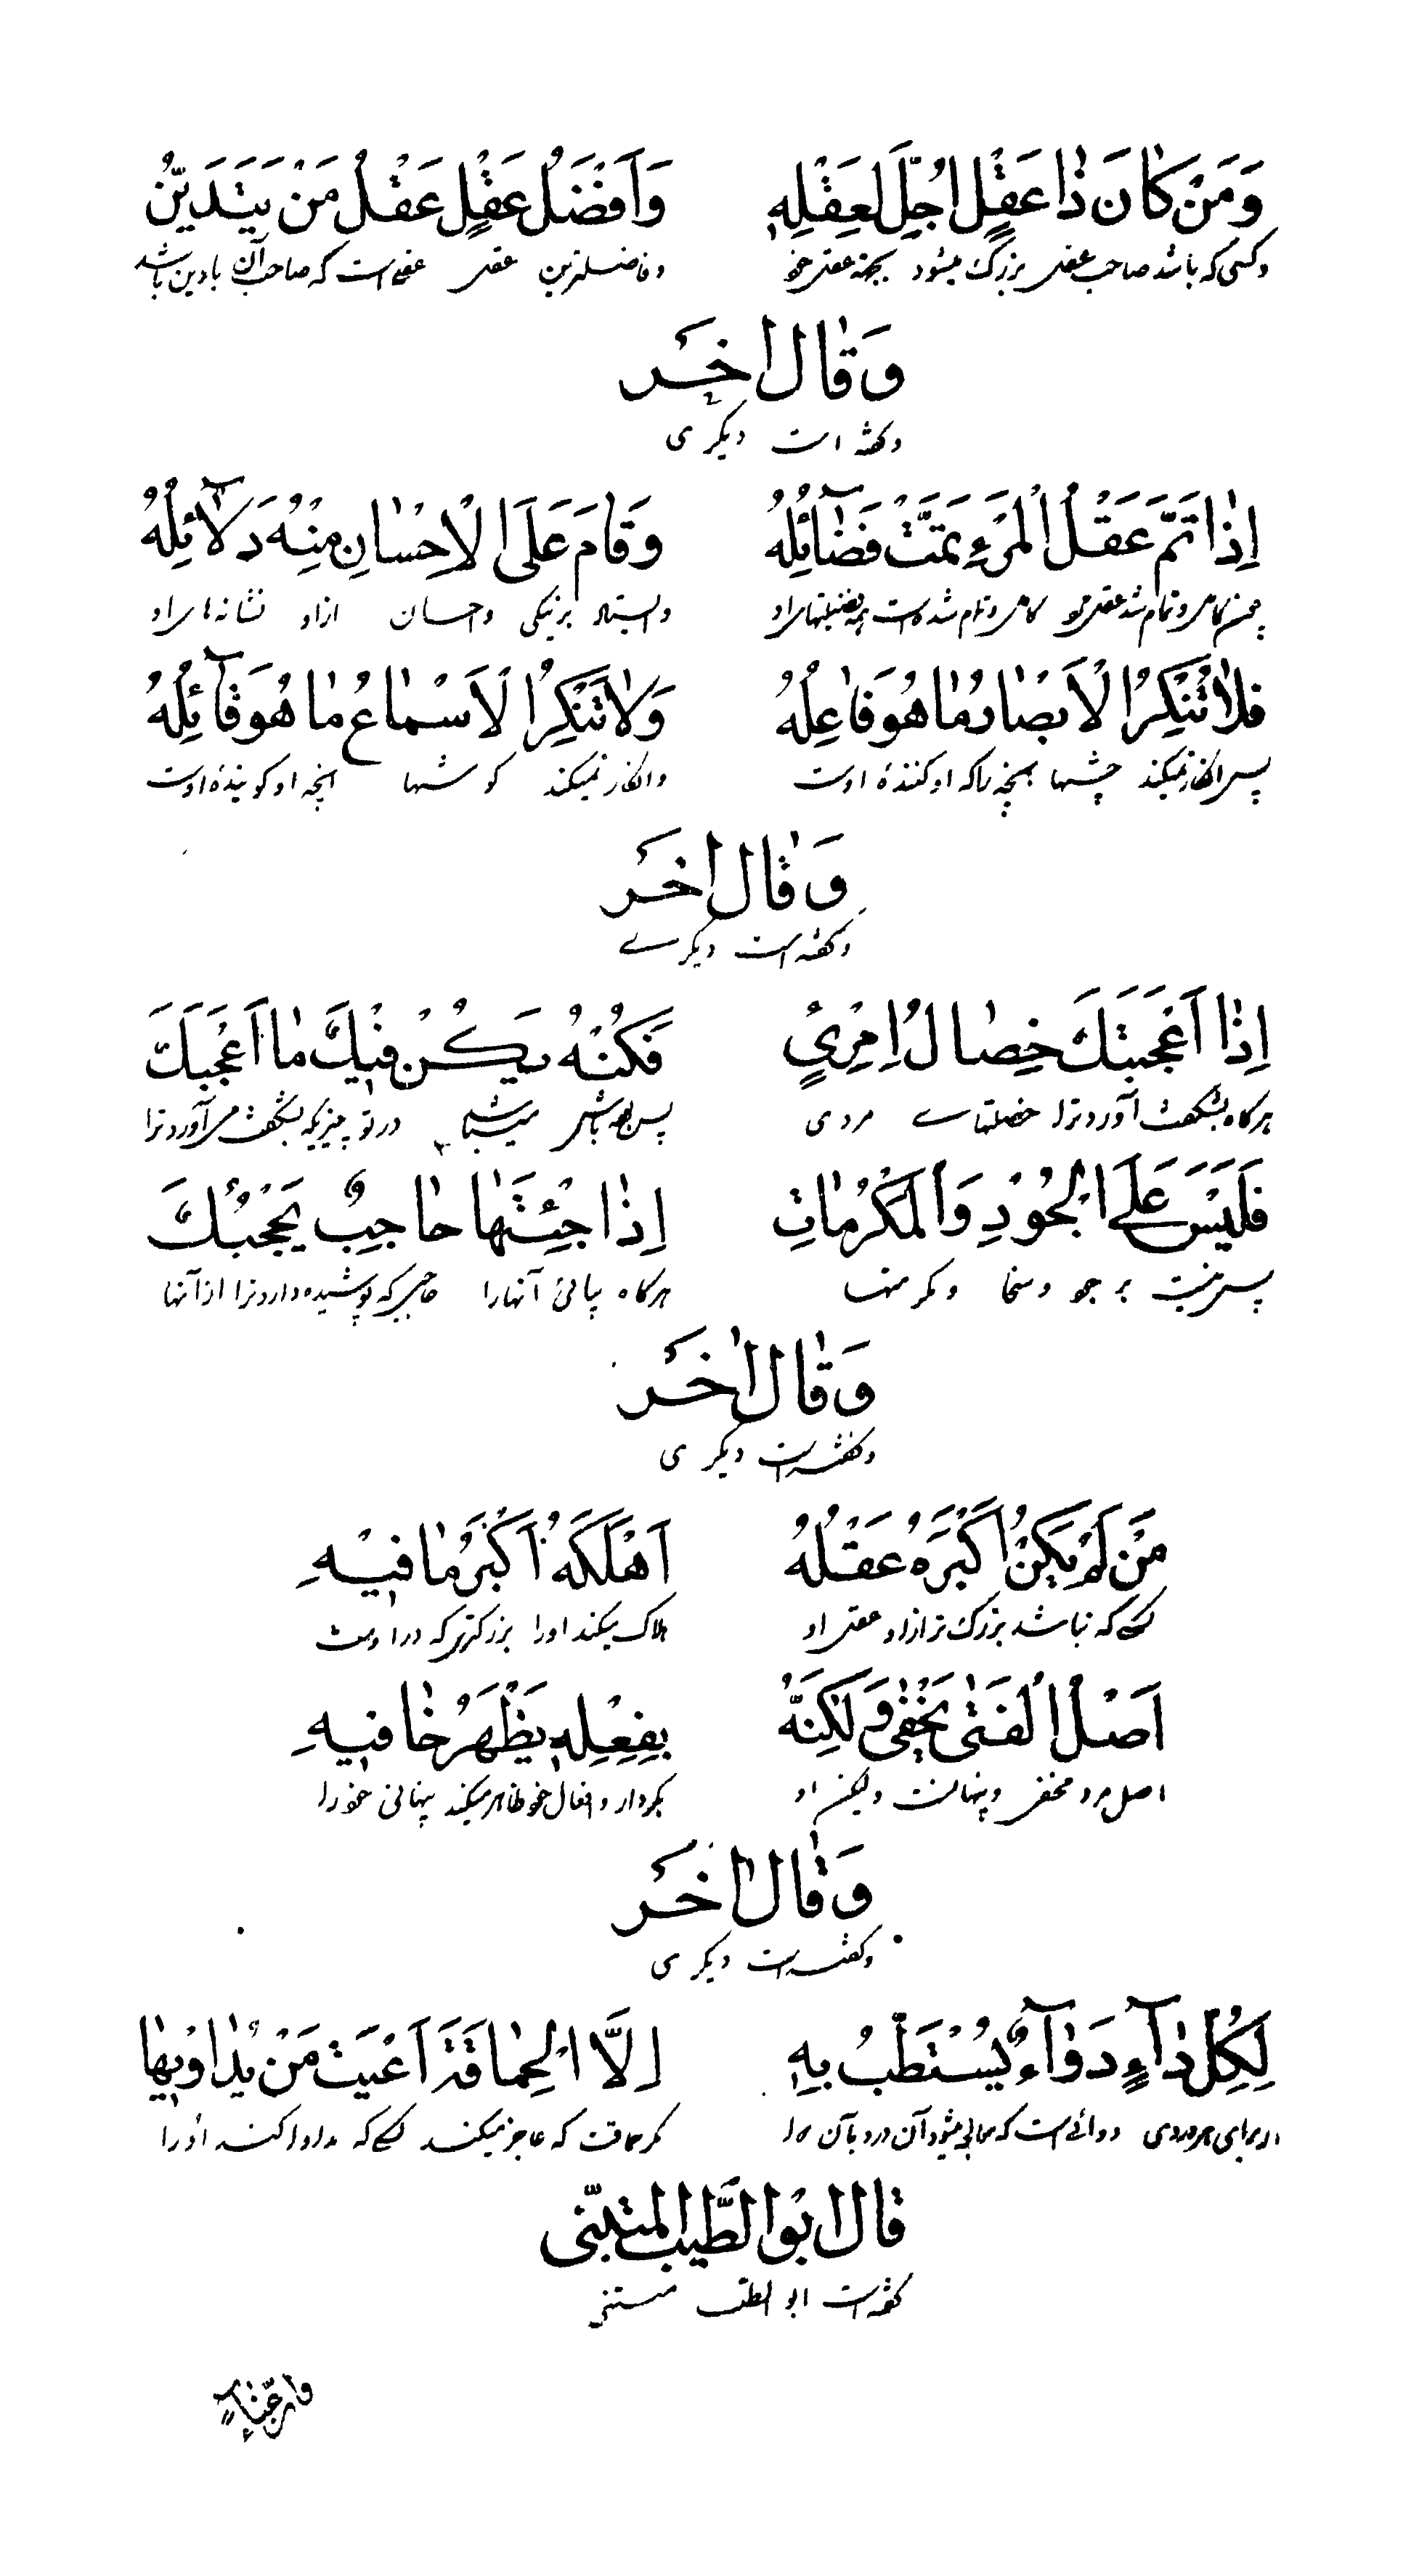 وَمَنْ كَانَ ذَا عَقْلٍ اُجِلَّ لِعَقْلِهِ وَاَفْضَلُ عَقْلٍ عَقْلُ مَنْ يَتَدَيَّنُ
وکسی که باشد صاحب عقل بزرگ میشود بجهة عقل خو وفاضلترین عقل عقلی است که صاحب آن بادین باشد
وَقَالَ اٰخَرُ
وگفته است دیگری
اِذَا تَمَّ عَقْلُ الْمَرْءِ تَمَّتْ فَضَائِلُهُ وَقَامَ عَلَى الْاِحْسَانِ مِنْهُ دَلَائِلُهُ
چون کامل و تمام شد عقل مرد کامل و تمام شده است همه فضیلتهای او وایستاد بر نیکی واحسان ازاو نشانه‌های او
فَلَا تُنْكِرُ الْاَبْصَارُ مَا هُوَ فَاعِلُهُ وَلَا تُنْكِرُ الْاَسْمَاعُ مَا هُوَ قَائِلُهُ
پس انکار نمیکند چشمها آنچه را که او کنندهٔ اوست وانکار نمیکند گوشها آنچه او گویندهٔ اوست
وَقَالَ اٰخَرُ
وگفته است دیگرے
اِذَا اَعْجَبَتْكَ خِصَالُ امْرِئٍ فَكُنْهُ يَكُنْ فِيكَ مَا اَعْجَبَكَ
هرگاه بشگفت آورد ترا خصلتهاے مردی پس باش میباشد در تو چیزیکه بشگفت می‌آورد ترا
فَلَيْسَ عَلَى الْجُوْدِ وَالْمَكْرُمَاتِ اِذَا جِئْتَهَا حَاجِبٌ يَحْجُبُكَ
پس نیست بر جود وسخا ومکرمتها هرگاه بیائی آنهارا حاجبی که پوشیده دارد ترا از آنها
وَقَالَ اٰخَرُ
وگفته است دیگری
مَنْ لَمْ يَكُنْ اَكْبَرَهُ عَقْلُهُ اَهْلَكَهُ اَكْبَرُ مَا فِيْهِ
کسے که نباشد بزرگ تر ازاو عقل او هلاک میکند اورا بزرگتر که در اوست
اَصْلُ الْفَتٰى يَخْفٰى وَلٰكِنَّهُ بِفِعْلِهِ يَظْهَرُ خَافِيهِ
اصل مرد مخفی وپنهانست ولیکن او بکردار وافعال خو ظاهر میکند پنهانی خودرا
وَقَالَ اٰخَرُ
وگفته است دیگری
لِكُلِّ دَاءٍ دَوَاءٌ يُسْتَطَبُّ بِهِ اِلَّا الْحِمَاقَةَ اَعْيَتْ مَنْ يُدَاوِيْهَا
از برای هر دردی دوائے است که معالجه میشود آن درد بآن دوا مگر حماقت که عاجز میکند کسے که مداوا کند اورا
قَالَ اَبُو الطَّيِّبِ الْمُتَنَبِّى
گفته است ابو الطیب متنبی